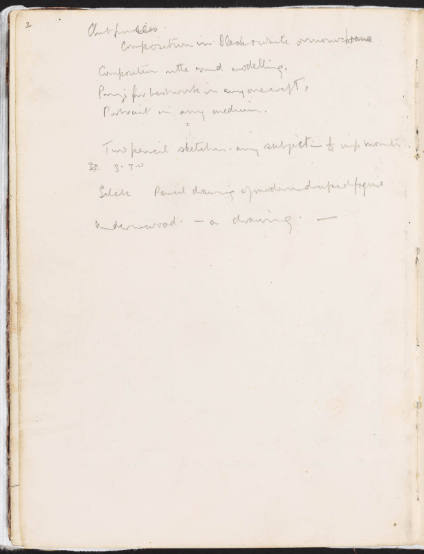 2
Club prizes
Composition in Black & white or monochrome
Composition in the round modelling.
Prize for best work in any one craft,
Portrait in any medium.
Two pencil sketches. any subject
3.7.0
Pencil drawing of modern draped figure
Underwood. — a drawing. —